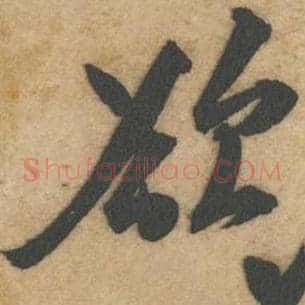 欲
Shufaziliao.COM